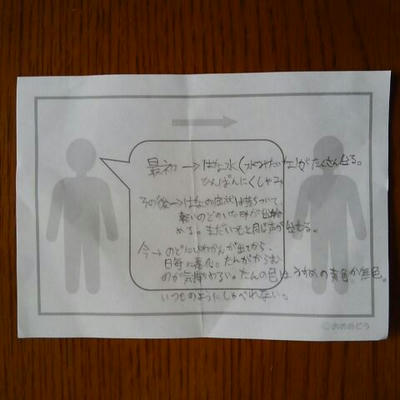 最初→はな水(水みたいな)がたくさん出る。
ひんぱんにくしゃみ
その後→はなの症状は落ちついて、
軽いのどのいたみが出始
める。まだいつもと同じ声が出せる。
今→のどにいわかんが出てから、
日毎に悪化。たんがからむ
のが気持ちわるい。たんの色はうすめの黄色か無色。
いつものようにしゃべれない。